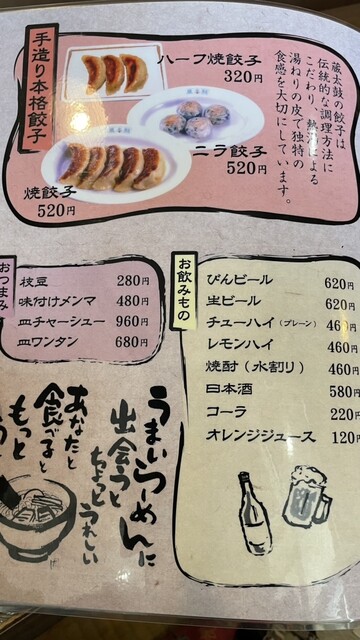 手造り本格餃子
ハーフ焼餃子
320円
ニラ餃子
520円
焼餃子
520円
蔵太鼓の餃子は
伝統的な調理方法に
こだわり、熱湯による
湯ねりの皮で独特の
食感を大切にしています。
おつまみ
枝豆 280円
味付けメンマ 480円
皿チャーシュー 960円
皿ワンタン 680円
お飲みもの
びんビール 620円
生ビール 620円
チューハイ(プレーン) 460
レモンハイ 460円
焼酎(水割り) 460円
日本酒 580円
コーラ 220円
オレンジジュース 120円
うまいらーめんに
出会うと
ちょっとうれしい
あなたと
食べると
もっと